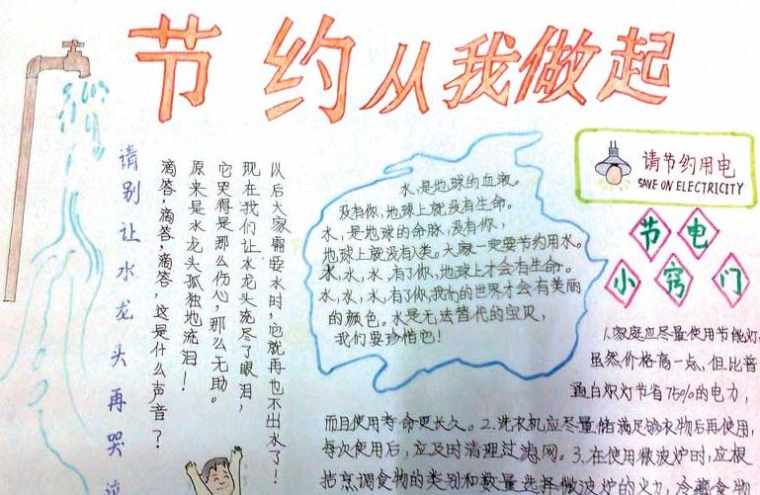 节约从我做起
请别让水龙头再哭泣
滴答，滴答，滴答，这是什么声音？
原来是水龙头孤独地流泪！
它哭得是那么伤心，那么无助。
现在我们让水龙头流尽了眼泪，
以后大家需要水时，它就再也不出水了！
水，是地球的血液。
没有你，地球上就没有生命。
水，是地球的命脉，没有你，
地球上就没有人类。大家一定要节约用水。
水，水，水，有了你，地球上才会有生命。
水，水，水，有了你，我们的世界才会有美丽
的颜色。水是无法替代的宝贝，
我们要珍惜它！
请节约用电
SAVE ON ELECTRICITY
节电
小窍门
1.家庭应尽量使用节能灯，
虽然价格高一点，但比普
通白炽灯节省75%的电力，
而且使用寿命更长久。2.洗衣机应尽量储满足够衣物后再使用，
每次使用后，应及时清理过滤网。3.在使用微波炉时，应根
据烹调食物的类别和数量选择微波炉的火力，冷藏食物